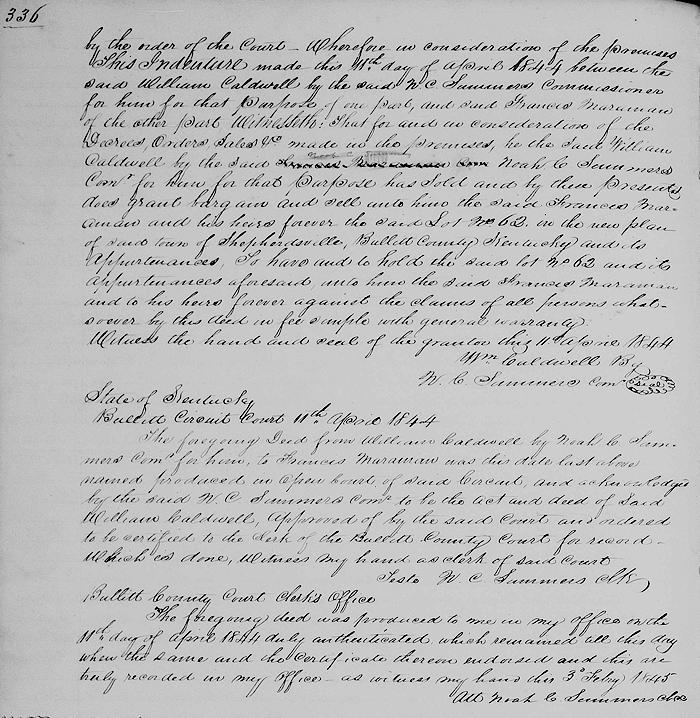 336
by the order of the Court - Wherefore in consideration of the premises
This Indenture made this 11th day of April 1844 between the
said William Caldwell by the said N. C. Summers Commissioner
for him for that purpose of one part, and said Francis Maraman
of the other part Witnesseth: That for and in consideration of the
Decrees, Orders, Sales &c made in the premises, he the said William
Caldwell by the said Noah C. Summers
Comr for him for that purpose has sold and by these presents
does grant bargain and sell unto him the said Frances Mar-
aman and his heirs forever the said Lot No 62 in the new plan
of said town of Shepherdsville, Bullitt County Kentucky and its
appurtenances, To have and to hold the said lot No 62 and its
appurtenances aforesaid, unto him the said Francis Maraman
and to his heirs forever against the claims of all persons what-
soever by this deed in fee simple with general warranty.
Witness the hand and seal of the grantor this 11th April 1844
Wm Caldwell By
N. C. Summers Comr Seal
State of Kentucky
Bullitt Circuit Court 11th April 1844
The foregoing Deed from William Caldwell by Noah C. Sum-
mers Comr for him, to Francis Maraman was this date last above
named produced in open Court of said Circuit, and acknowledged
by the said N. C. Summers Comr to be the act and deed of said
William Caldwell, approved of by the said Court and ordered
to be certified to the Clerk of the Bullitt County Court for record -
Which is done, Witness my hand as clerk of said Court
Teste N C Summers Clk
Bullitt County Court Clerk's Office
The foregoing deed was produced to me in my office on the
11th day of April 1844 duly authenticated which remained all this day
when the same and the certificate thereon endorsed and this are
truly recorded in my office - as witness my hand this 3d Feby 1845
Att Noah C. Summers Clk